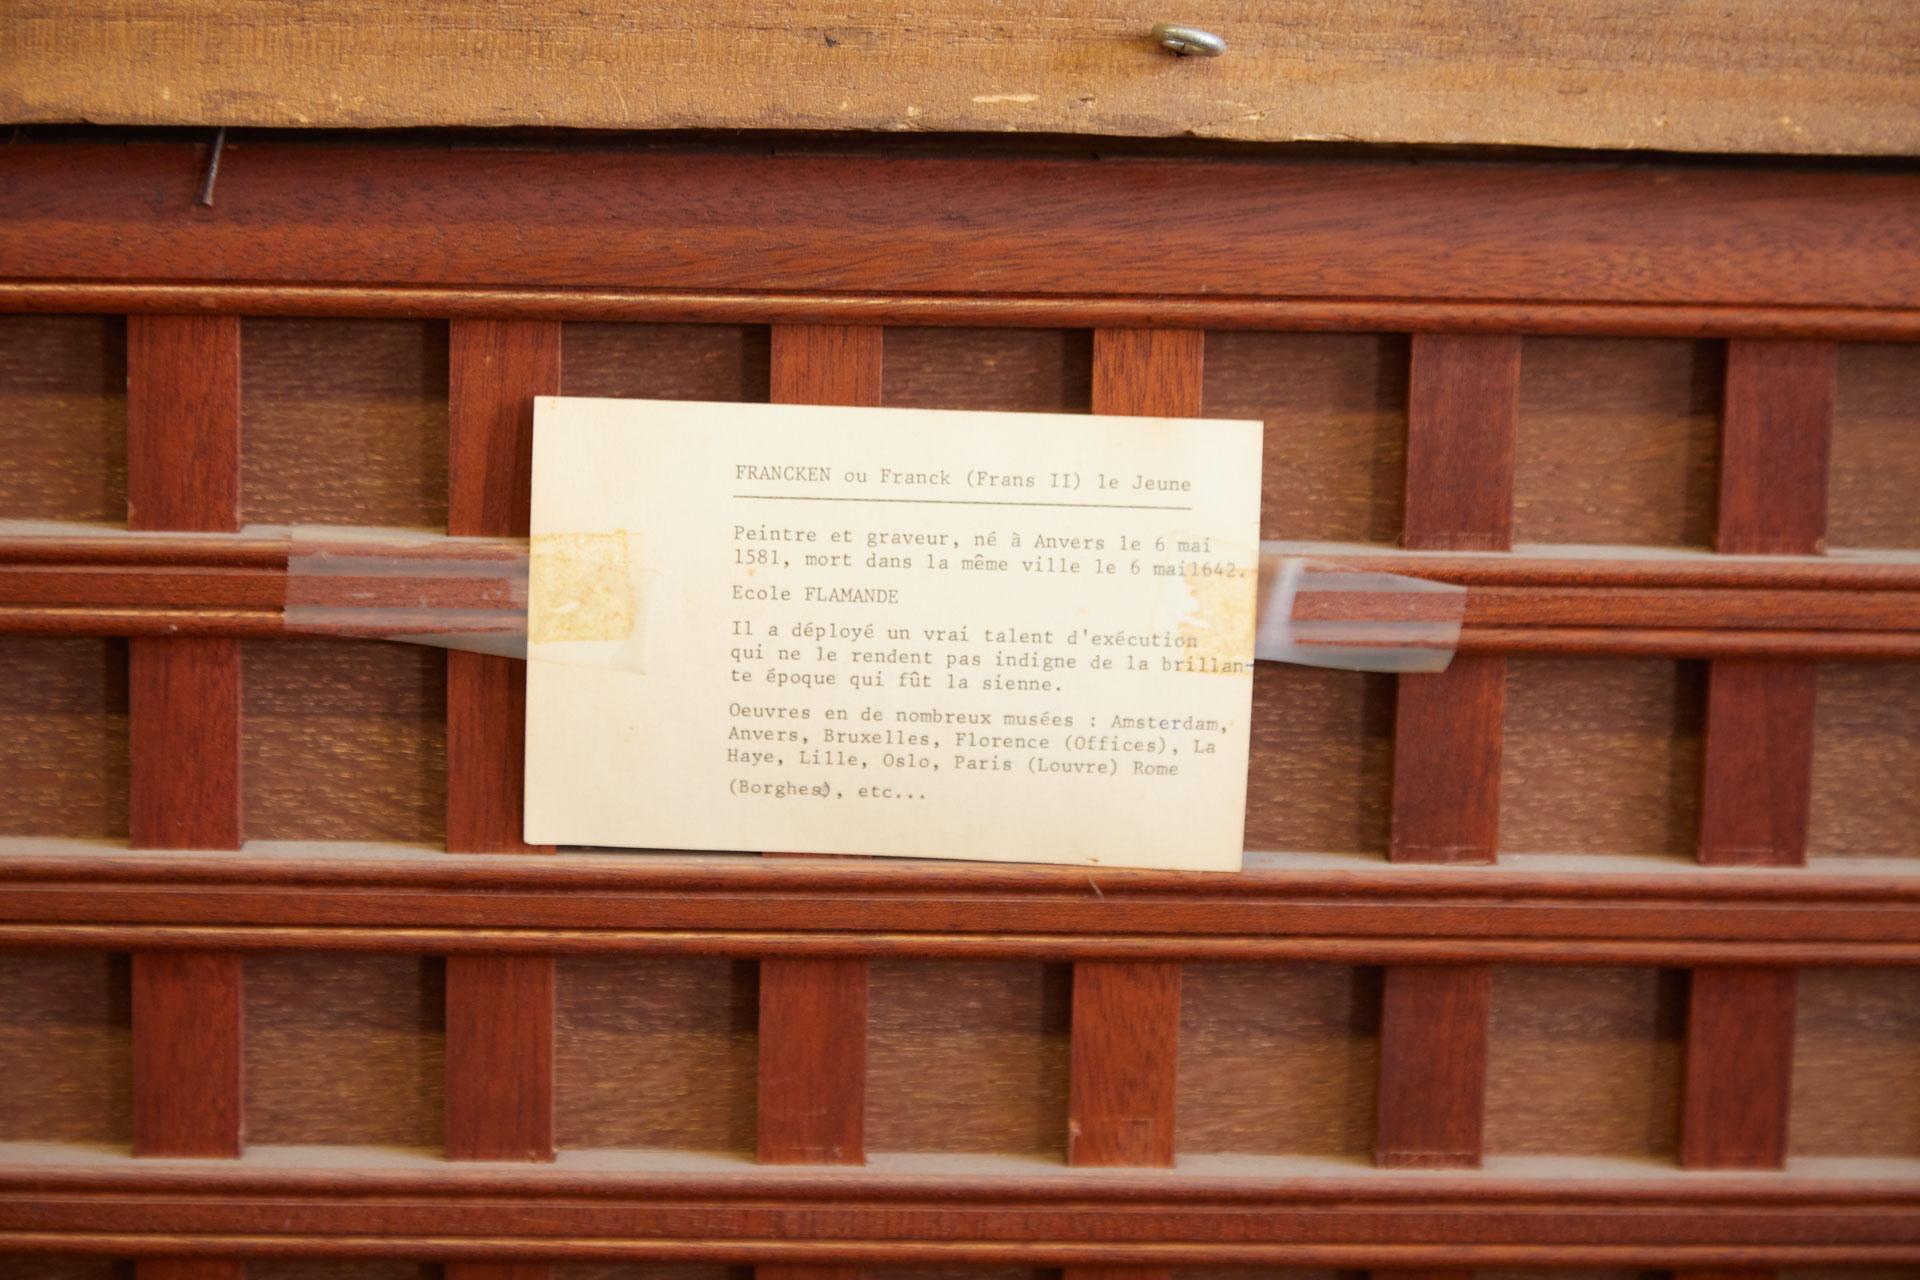 FRANCKEN ou Franck (Frans II) le Jeune
Peintre et graveur, né à Anvers le 6 mai
1581, mort dans la même ville le 6 mai1642.
Ecole FLAMANDE
Il a déployé un vrai talent d'exécution
qui ne le rendent pas indigne de la brillan-
te époque qui fût la sienne.
Oeuvres en de nombreux musées : Amsterdam,
Anvers, Bruxelles, Florence (Offices), La
Haye, Lille, Oslo, Paris (Louvre) Rome
(Borghese), etc...